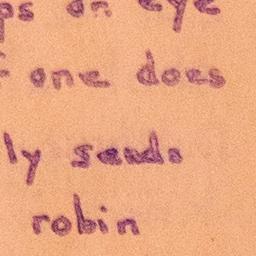 ps an eye
f one does
ly sands
robin